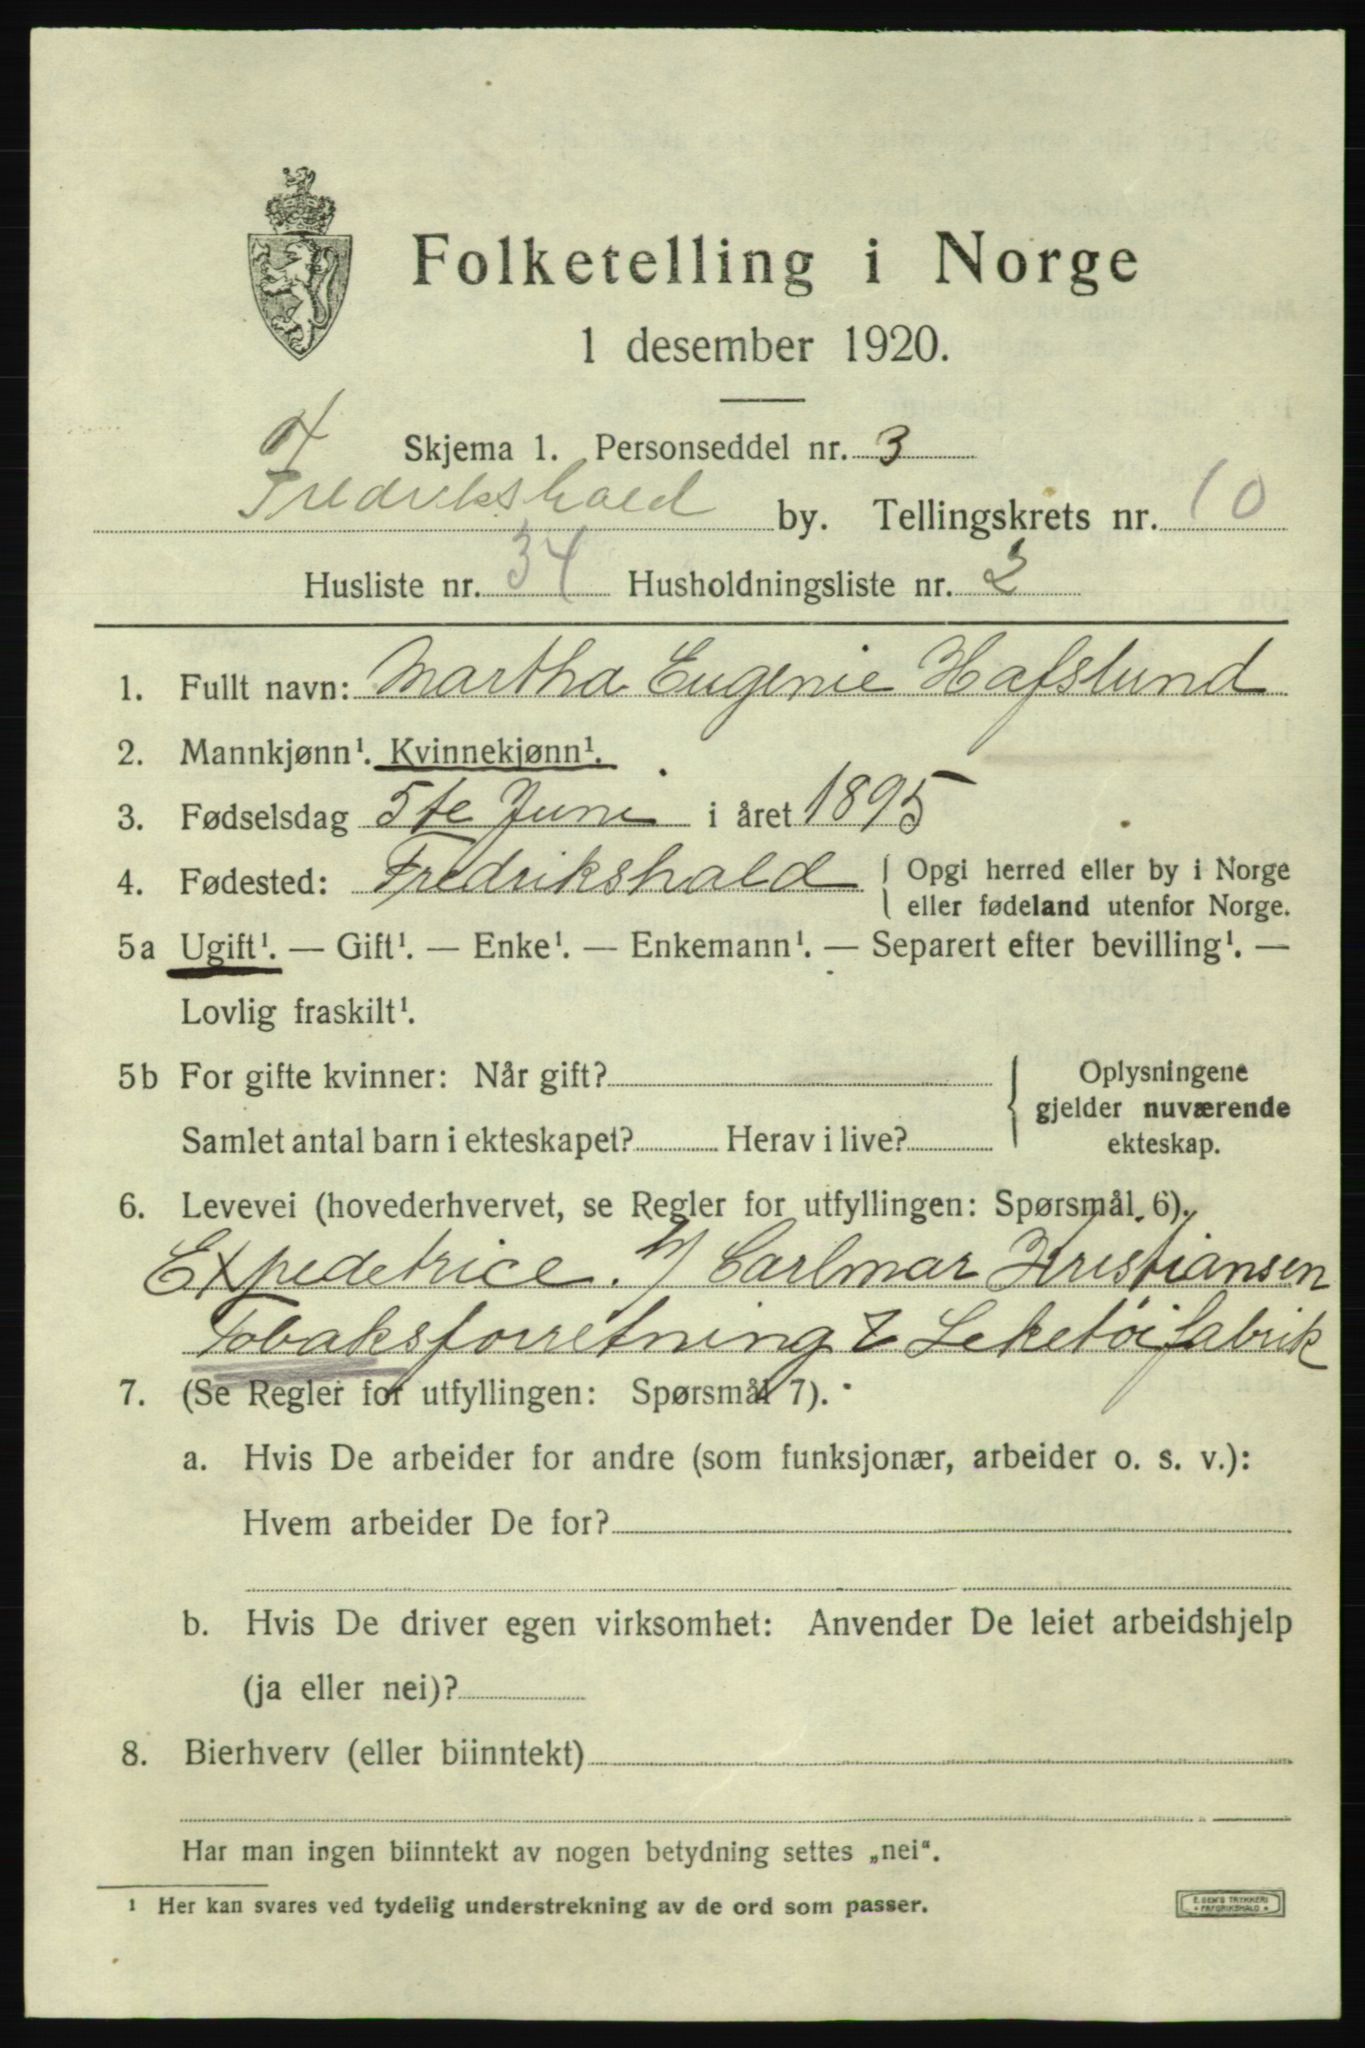 Folketelling i Norge
1 desember 1920.
Skjema 1. Personseddel nr. 3
Fredrikshald by. Tellingskrets nr. 10
Husliste nr. 34 Husholdningsliste nr. 2
1. Fullt navn: Martha Eugenie Hafslund
2. Mannkjønn¹. Kvinnekjønn¹.
3. Fødselsdag 5te Juni i året 1895
4. Fødested: Fredrikshald { Opgi herred eller by i Norge
eller fødeland utenfor Norge.
5a Ugift¹. — Gift¹. — Enke¹. — Enkemann¹. — Separert efter bevilling¹. —
Lovlig fraskilt¹.
5b For gifte kvinner: Når gift? { Oplysningene
gjelder nuværende
Samlet antal barn i ekteskapet? Herav i live? ekteskap.
6. Levevei (hovederhvervet, se Regler for utfyllingen: Spørsmål 6).
Expedetrice. h/ Carlmar Kristiansen
Tobaksforretning & Leketøifabrik
7. (Se Regler for utfyllingen: Spørsmål 7).
a. Hvis De arbeider for andre (som funksjonær, arbeider o. s. v.):
Hvem arbeider De for?
b. Hvis De driver egen virksomhet: Anvender De leiet arbeidshjelp
(ja eller nei)?
8. Bierhverv (eller biinntekt)
Har man ingen biinntekt av nogen betydning settes „nei“.
¹ Her kan svares ved tydelig understrekning av de ord som passer.
E. SEM'S TRYKKERI
FREDRIKSHALD